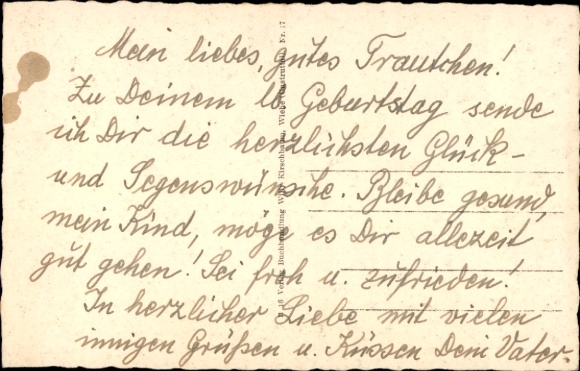 Mein liebes, gutes Trautchen!
Zu Deinem lb. Geburtstag sende
ich Dir die herzlichsten Glück-
und Segenswünsche. Bleibe gesund,
mein Kind, möge es Dir allezeit
gut gehen! Sei froh u. zufrieden!
In herzlicher Liebe mit vielen
innigen Grüßen u. Küssen Dein Vater.
Verlag Buchhandlung Kirschhausen, Wiehe (Unstruttal) Nr. 17